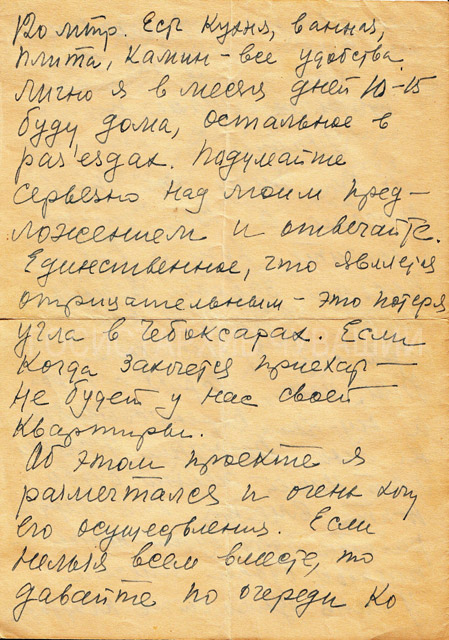 120 мтр. Есть кухня, ванная,
плита, камин – все удобства.
Лично я в месяц дней 10–15
буду дома, остальное в
раз'ездах. Подумайте
серьезно над моим пред-
ложением и отвечайте.
Единственное, что является
отрицательным – это потеря
угла в Чебоксарах. Если
когда захочется приехать –
не будет у нас своей
квартиры.
Об этом проекте я
размечтался и очень хочу
его осуществления. Если
нельзя всем вместе, то
давайте по очереди ко